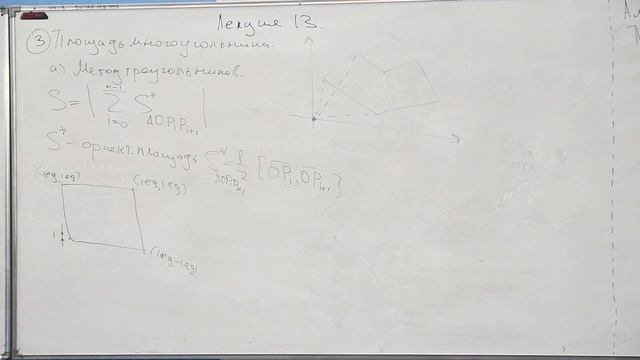 Лекция 13.
③ Площадь многоугольника.
а) Метод треугольников.
S = | \sum_{i=0}^{n-1} S^*_{ΔOP_iP_{i+1}} |
S^* - ориент. площадь S^*_{ΔOP_iP_{i+1}} = \frac{1}{2} [\overline{OP}_i, \overline{OP}_{i+1}]
(-1e9, 1e9)
(1e9, 1e9)
1
(1e9, -1e9)